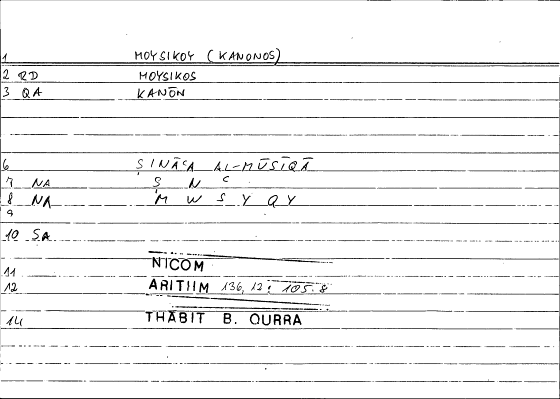 1 MOYSIKOY (KANONOS)
2 RD MOYSIKOS
3 QA KANŌN
6 ṢINĀCA AL-MŪSĪQĀ
7 NA Ṣ N C
8 NA M W S Y Q Y
9
10 SA
11 NICOM
12 ARITHM 136,12; 105.8
14 THĀBIT B. QURRA